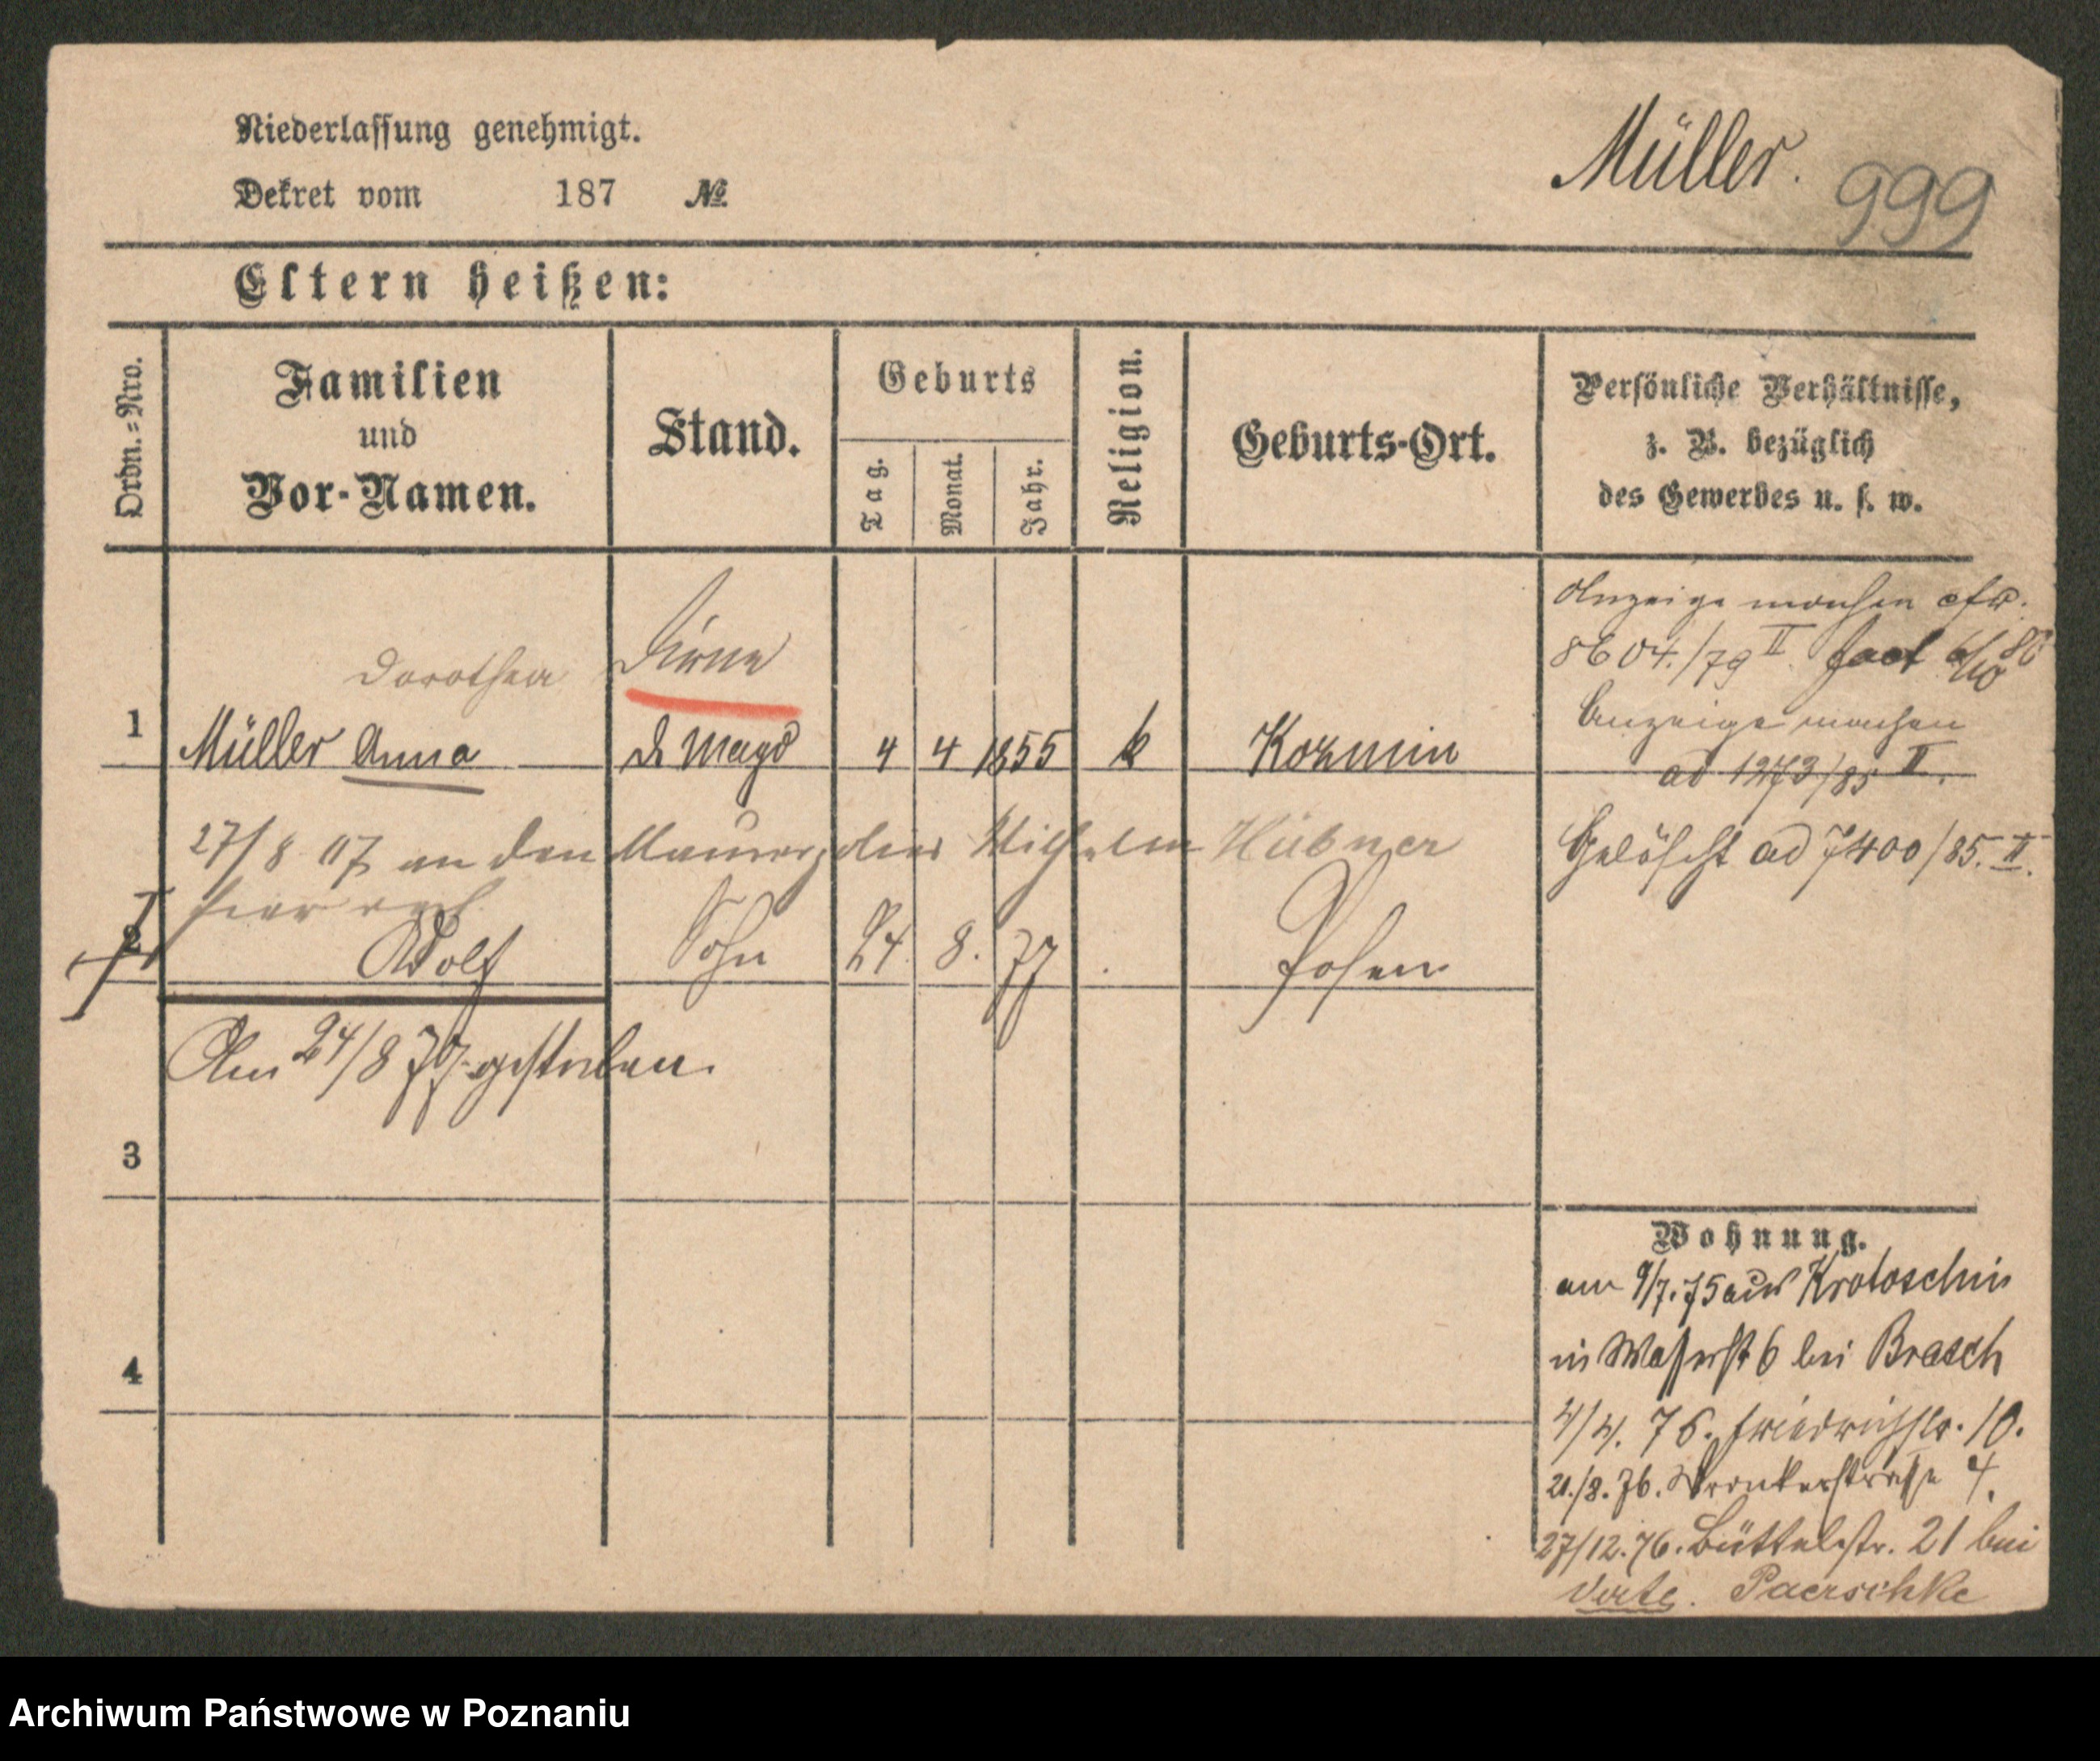 Niederlassung genehmigt.
Dekret vom 187 №
Müller.
999
Eltern heißen:
Ordn.=Nro.
Familien
und
Vor-Namen.
Stand.
Geburts
Tag.
Monat.
Jahr.
Religion.
Geburts-Ort.
Persönliche Verhältnisse,
z. B. bezüglich
des Gewerbes u. s. w.
Dorothea Dirne
1 Müller Anna d. Magd 4 4 1855 k Kozmin
Anzeige machen cfr.
8604./79 II. fact
Anzeige machen
ad 1273/85 II.
Gelöscht ad 7400/85. II.
27/8 07 an den Maurer Wilhelm Hübner
hier verh.
2 Adolf Sohn 24. 8. 77 Posen
Am 24/8 79 gestorben.
3
4
Wohnung.
am 9/7. 75 aus Krotoschin
in Wasserst 6 bei Brasch
4/4. 76. Friedrichstr. 10.
21./8. 76. Wronkerstrasse 4.
27/12. 76. Büttelstr. 21 bei
verte. Paerschke
Archiwum Państwowe w Poznaniu